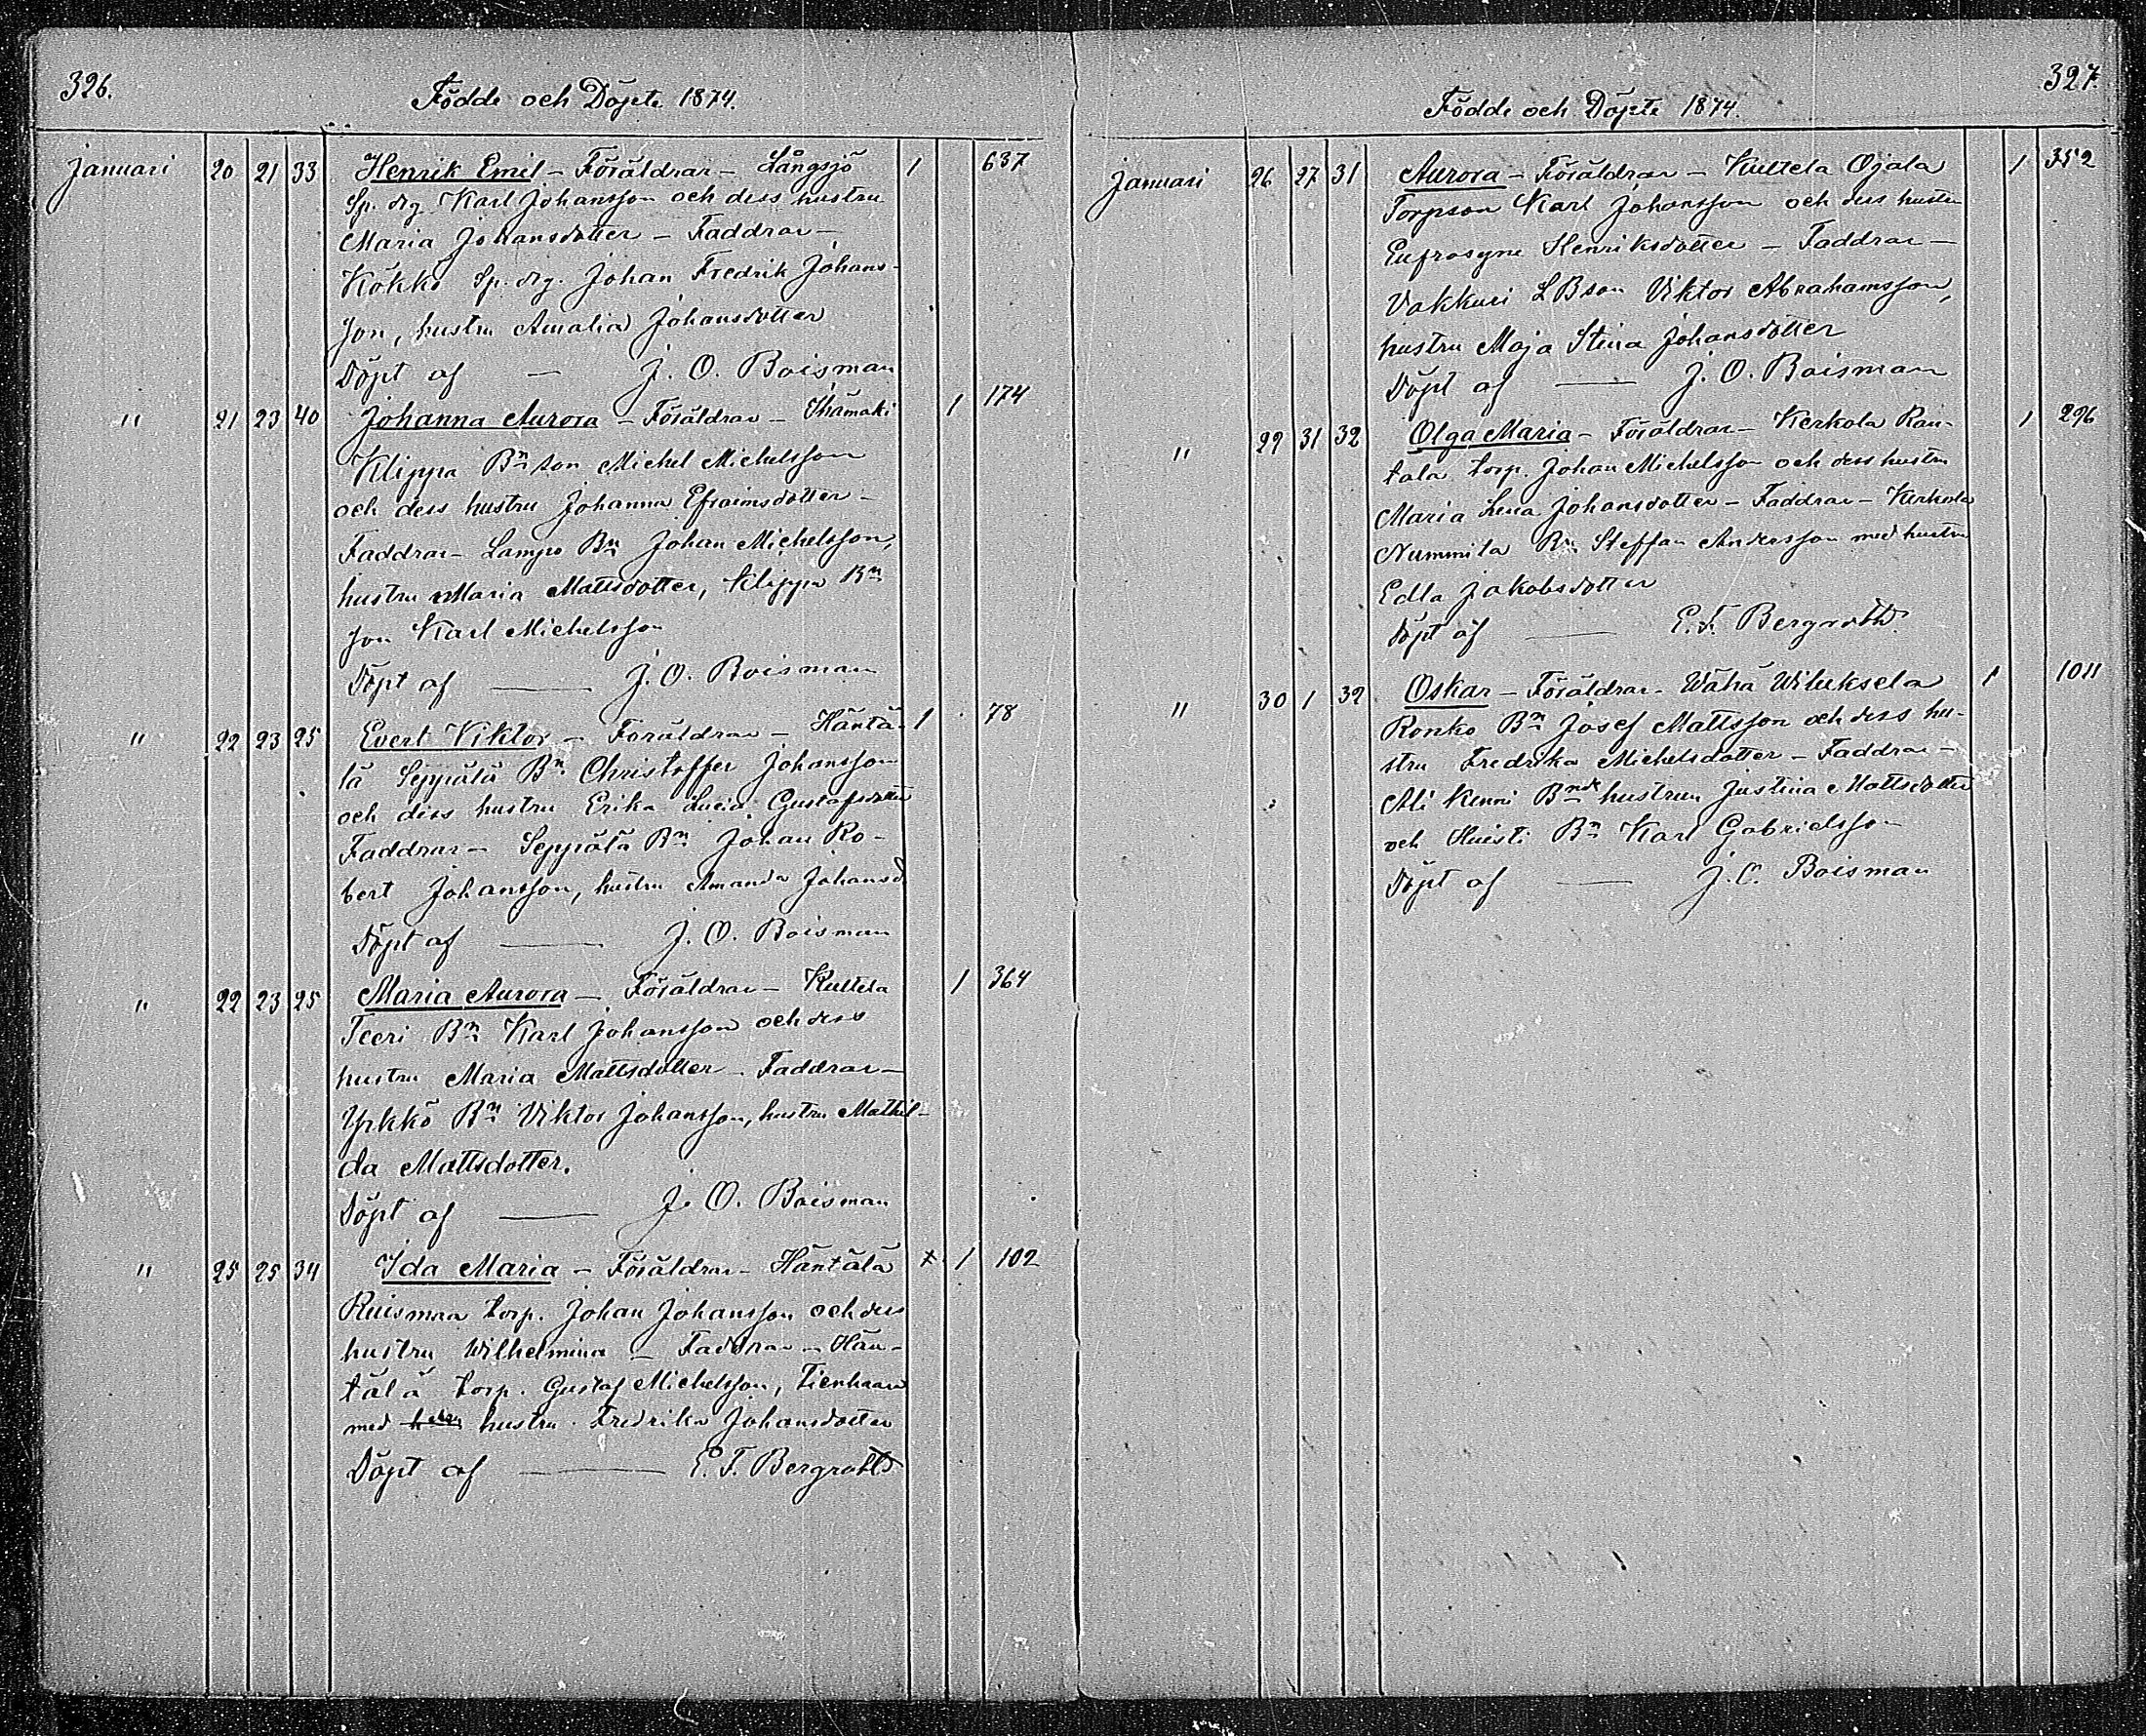 326.
Födde och Döpte 1874.
Januari 20 21 33 Henrik Emil – Föräldrar – Långsjö 1 637
Sp. drg. Karl Johansson och dess hustru
Maria Johansdotter – Faddrar –
Kökkö Sp. drg. Johan Fredrik Johans-
son, hustru Amalia Johansdotter
Döpt af — J. O. Boisman
" 21 23 40 Johanna Aurora – Föräldrar – Ihämäki 1 174
Klippa Bn son Michel Michelsson
och dess hustru Johanna Efraimsdotter –
Faddrar – Lampo Bn Johan Michelsson,
hustru Maria Mattsdotter, Klippa Bn
son Karl Michelsson
Döpt af — J. O. Boisman
" 22 23 25 Evert Viktor – Föräldrar – Häntä- 1 78
lä Seppälä Bn Christoffer Johansson
och dess hustru Erika Lucia Gustafsdotter
Faddrar – Seppälä Bn Johan Ro-
bert Johansson, hustru Amanda Johansd.
Döpt af — J. O. Boisman
" 22 23 25 Maria Aurora – Föräldrar – Kultela 1 364
Teeri Bn Karl Johansson och dess
hustru Maria Mattsdotter – Faddrar –
Yrkkö Bn Viktor Johansson, hustru Mathil-
da Mattsdotter.
Döpt af — J. O. Boisman
" 25 25 34 Ida Maria – Föräldrar – Häntälä x 1 102
Ruismaa torp. Johan Johansson och dess
hustru Wilhelmina – Faddrar – Hän-
tälä torp. Gustaf Michelsson, Tienhaara
med hustru Fredrika Johansdotter
Döpt af — E. F. Bergroth
327.
Födde och Döpte 1874.
Januari 26 27 31 Aurora – Föräldrar – Kultela Ojala 1 352
Torpson Karl Johansson och dess hustru
Eufrosyne Henriksdotter – Faddrar –
Vakkuri L Bson Viktor Abrahamsson,
hustru Maja Stina Johansdotter
Döpt af — J. O. Boisman
" 29 31 32 Olga Maria – Föräldrar – Kerkola Rau- 1 296
tala torp. Johan Michelsson och dess hustru
Maria Lena Johansdotter – Faddrar – Kerkola
Nummila Bn Steffan Andersson med hustru
Edla Jakobsdotter
Döpt af — E. F. Bergroth
" 30 1 32 Oskar – Föräldrar – Wähä Wiluksela 1 1011
Ronko Bn Josef Mattsson och dess hu-
stru Fredrika Michelsdotter – Faddrar –
Ali Kenni Bnde hustrun Justina Mattsdotter
och Huisti Bn Karl Gabrielsson
Döpt af — J. O. Boisman